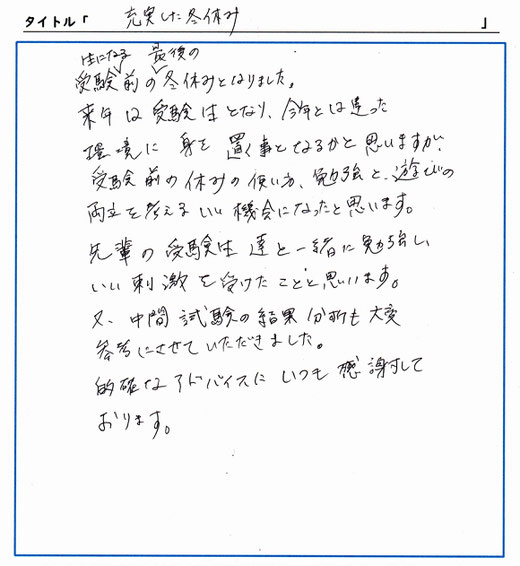 タイトル「 充実した冬休み 」
生になる 最後の
受験 前の 冬休みとなりました。
来年は受験生となり、今年とは違った
環境に 身を 置く事となるかと思いますが、
受験前の休みの使い方、勉強と、遊びの
両立を考えるいい機会になったと思います。
先輩の受験生達と一緒に勉強し
いい刺激を受けたことと思います。
又、中間試験の結果分析も大変
参考にさせていただきました。
的確なアドバイスにいつも感謝して
おります。